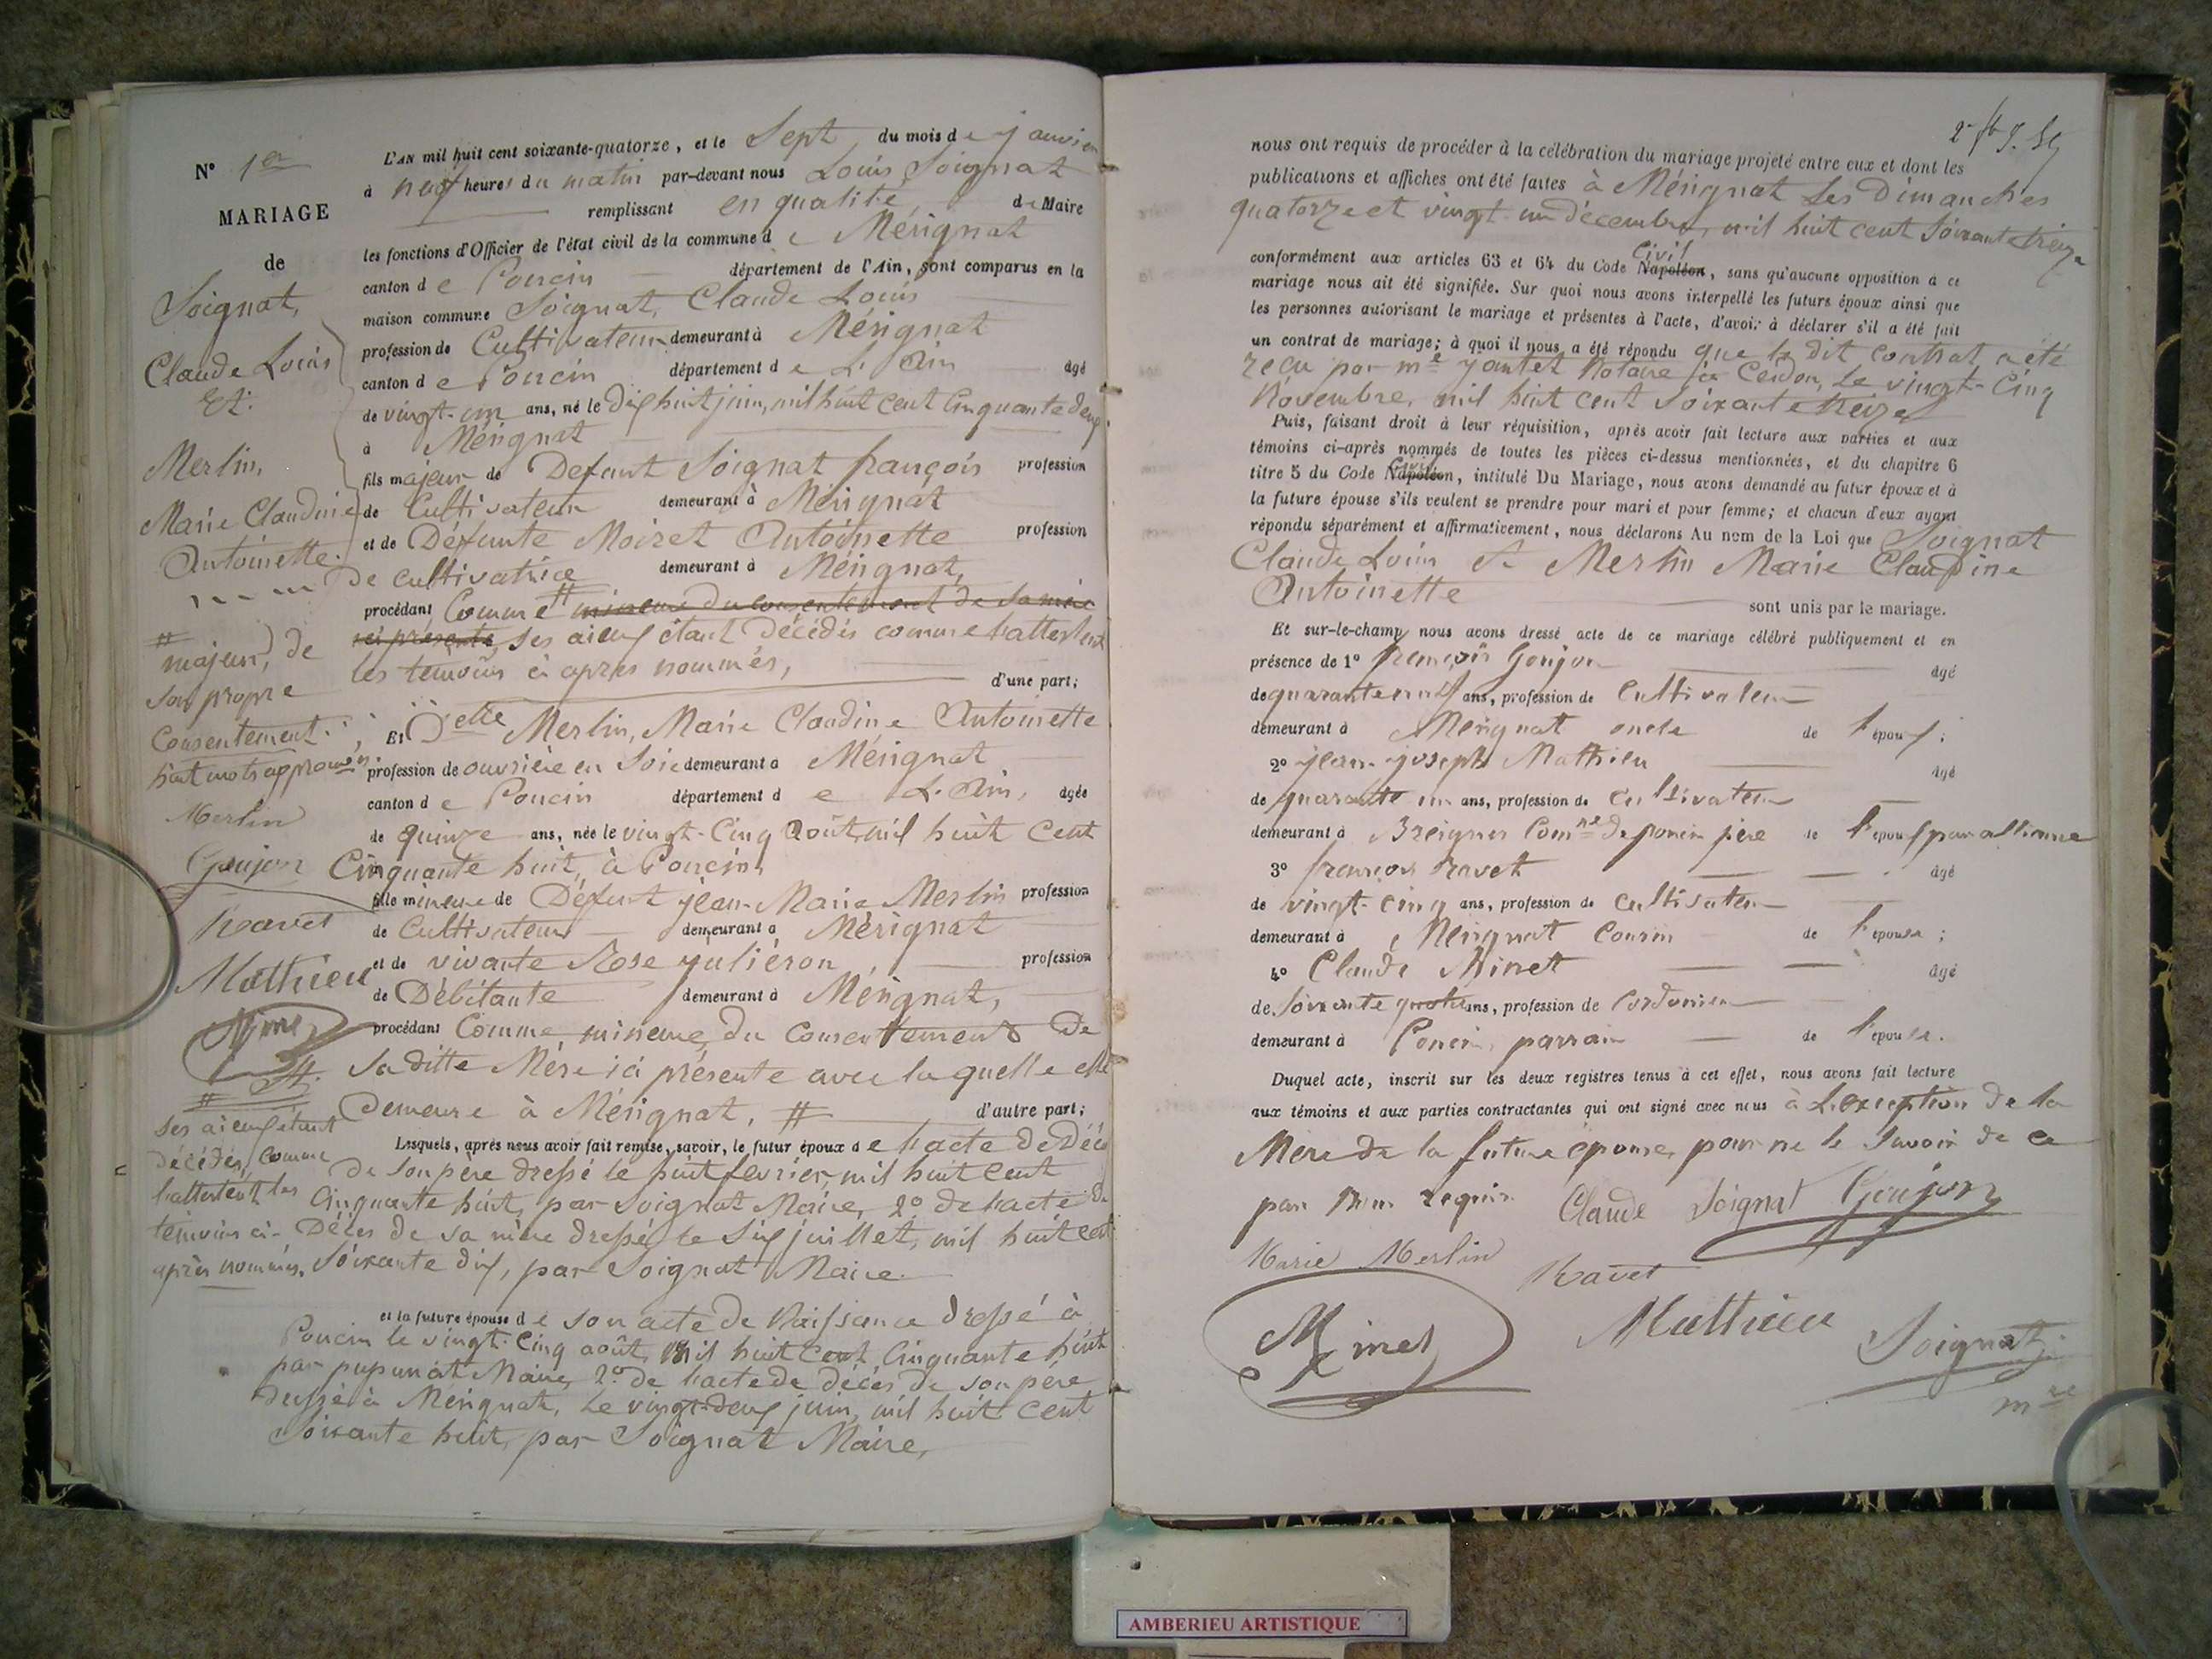 N° 1er
MARIAGE
de
Soignat,
Claude Louis
Et.
Merlin,
Marie Claudine
Antoinette.
# majeur, de
son propre
Consentement.
huit mots approuvés.
Merlin
Goujon
Ravet
Mathieu
Minet
#
ses aieux étant
décédés, comme
l'attestent les
témoins ci-
après nommés.
L'AN mil huit cent soixante-quatorze, et le Sept du mois de janvier
à neuf heures du matin par-devant nous Louis Soignat
remplissant en qualité de Maire
les fonctions d'Officier de l'état civil de la commune de Mérignat
canton de Poncin département de l'Ain, sont comparus en la
maison commune Soignat, Claude Louis
profession de Cultivateur demeurant à Mérignat
canton de Poncin département de L'Ain âgé
de vingt-un ans, né le Dix huit juin, mil huit cent Cinquante deux
à Mérignat
fils majeur de Defunt Soignat françois profession
de Cultivateur demeurant à Mérignat
et de Défunte Moiret Antoinette profession
De cultivatrice demeurant à Mérignat,
procédant Comme # mineur du consentement de sa mère
ici présente, ses aieux étant Décédés comme l'attestent
les temoins ci apres nommés,
d'une part;
Et Delle Merlin, Marie Claudine Antoinette
profession de ouvrière en Soie demeurant à Mérignat
canton de Poncin département de L'Ain, âgée
de quinze ans, née le vingt-Cinq Août, mil huit cent
Cinquante huit, à Poncin,
fille mineure de Défunt jean-Marie Merlin profession
de Cultivateur demeurant à Mérignat
et de vivante Rose juliéron profession
de Débitante demeurant à Mérignat,
procédant Comme mineure, du Consentement De
Sa ditte Mère ici présente avec laquelle elle
Demeure à Mérignat, # d'autre part;
Lesquels, après nous avoir fait remise, savoir, le futur époux de l'acte de Décè
De son père dressé le huit fevrier, mil huit cent
Cinquante huit, par Soignat Maire, 2° de l'acte de
Décès de sa mère dressé le Six juillet, mil huit cent
Soixante dix, par Soignat Maire.
et la future épouse de son acte de Naissance dressé à
Poncin le vingt-Cinq août, Mil huit Cent Cinquante huit
par pupunat Maire, 2° de l'acte de décès de son père
dressé à Mérignat, Le vingt-deux juin, mil huit cent
Soixante huit, par Soignat Maire,
nous ont requis de procéder à la célébration du mariage projeté entre eux et dont les
publications et affiches ont été faites à Mérignat Les Dimanches
quatorze et vingt-un décembre, mil huit cent Soixante treize
conformément aux articles 63 et 64 du Code Napoléon Civil, sans qu'aucune opposition a ce
mariage nous ait été signifiée. Sur quoi nous avons interpellé les futurs époux ainsi que
les personnes autorisant le mariage et présentes à l'acte, d'avoir à déclarer s'il a été fait
un contrat de mariage; à quoi il nous a été répondu que le dit contrat a été
reçu par me Jantet Notaire à Cerdon, Le vingt-Cinq
Novembre, mil huit cent Soixante treize
Puis, faisant droit à leur réquisition, après avoir fait lecture aux parties et aux
témoins ci-après nommés de toutes les pièces ci-dessus mentionnées, et du chapitre 6
titre 5 du Code Napoléon Civil, intitulé Du Mariage, nous avons demandé au futur époux et à
la future épouse s'ils veulent se prendre pour mari et pour femme; et chacun d'eux ayant
répondu séparément et affirmativement, nous déclarons Au nom de la Loi que Soignat
Claude Louis et Merlin Marie Claudine
Antoinette sont unis par le mariage.
Et sur-le-champ nous avons dressé acte de ce mariage célébré publiquement et en
présence de 1° françois Goujon âgé
de quarante neuf ans, profession de Cultivateur
demeurant à Mérignat oncle de l'époux;
2° jean-joseph Mathieu âgé
de quarante un ans, profession de cultivateur
demeurant à Breignes Comne de poncin père de l'époux par alliance
3° françois Ravet âgé
de vingt-cinq ans, profession de cultivateur
demeurant à Mérignat Cousin de l'épouse;
4° Claude Minet âgé
de Soixante quatre ans, profession de Cordonnier
demeurant à Poncin parrain de l'épouse.
Duquel acte, inscrit sur les deux registres tenus à cet effet, nous avons fait lecture
aux témoins et aux parties contractantes qui ont signé avec nous à L'exception de la
Mère de la future épouse, pour ne le Savoir de ce
par Nous requise Claude Soignat Goujon
Marie Merlin Ravet
Minet Mathieu Soignat
mre
AMBERIEU ARTISTIQUE